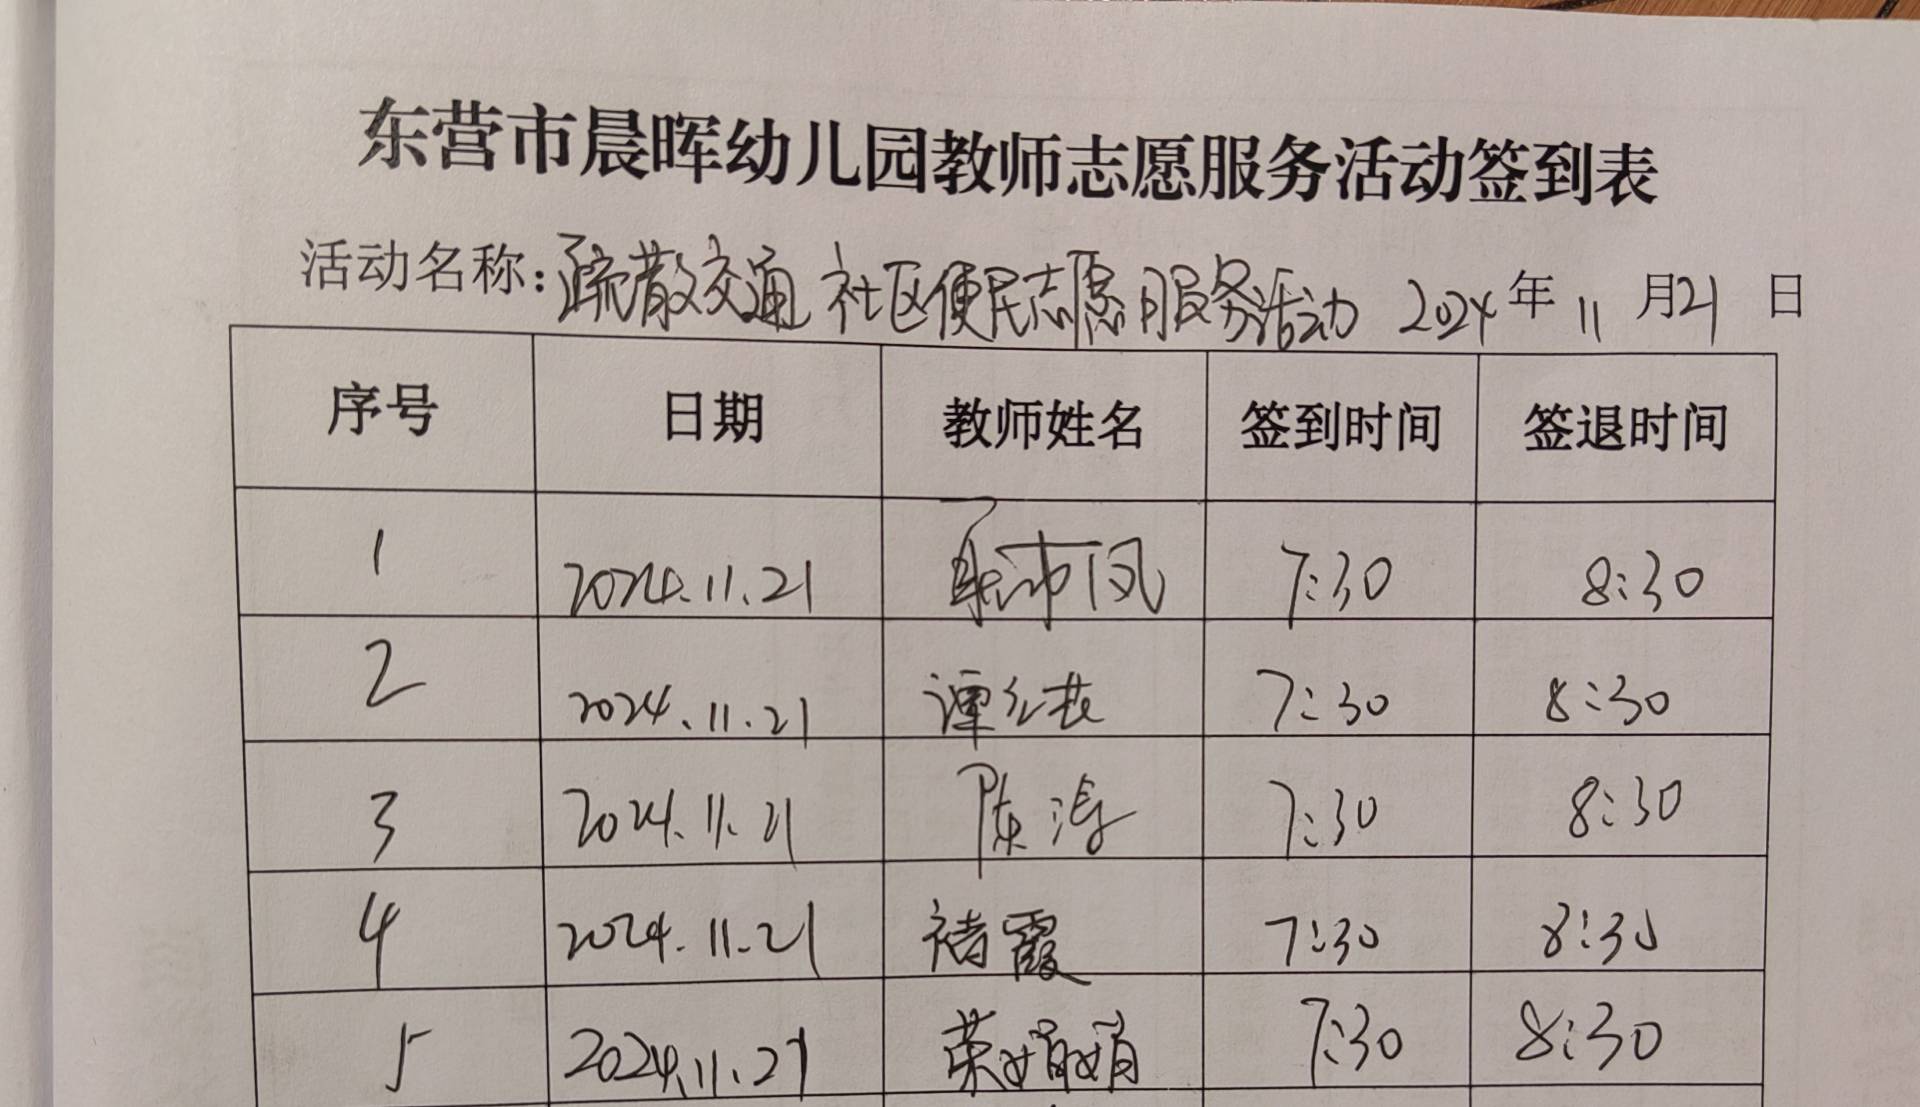 东营市晨晖幼儿园教师志愿服务活动签到表
活动名称:疏散交通 社区便民志愿服务活动 2024年11月21日
序号 日期 教师姓名 签到时间 签退时间
1 2024.11.21 7:30 8:30
2 2024.11.21 谭红艳 7:30 8:30
3 2024.11.21 陈涛 7:30 8:30
4 2024.11.21 褚霞 7:30 8:30
5 2024.11.21 荣娟娟 7:30 8:30